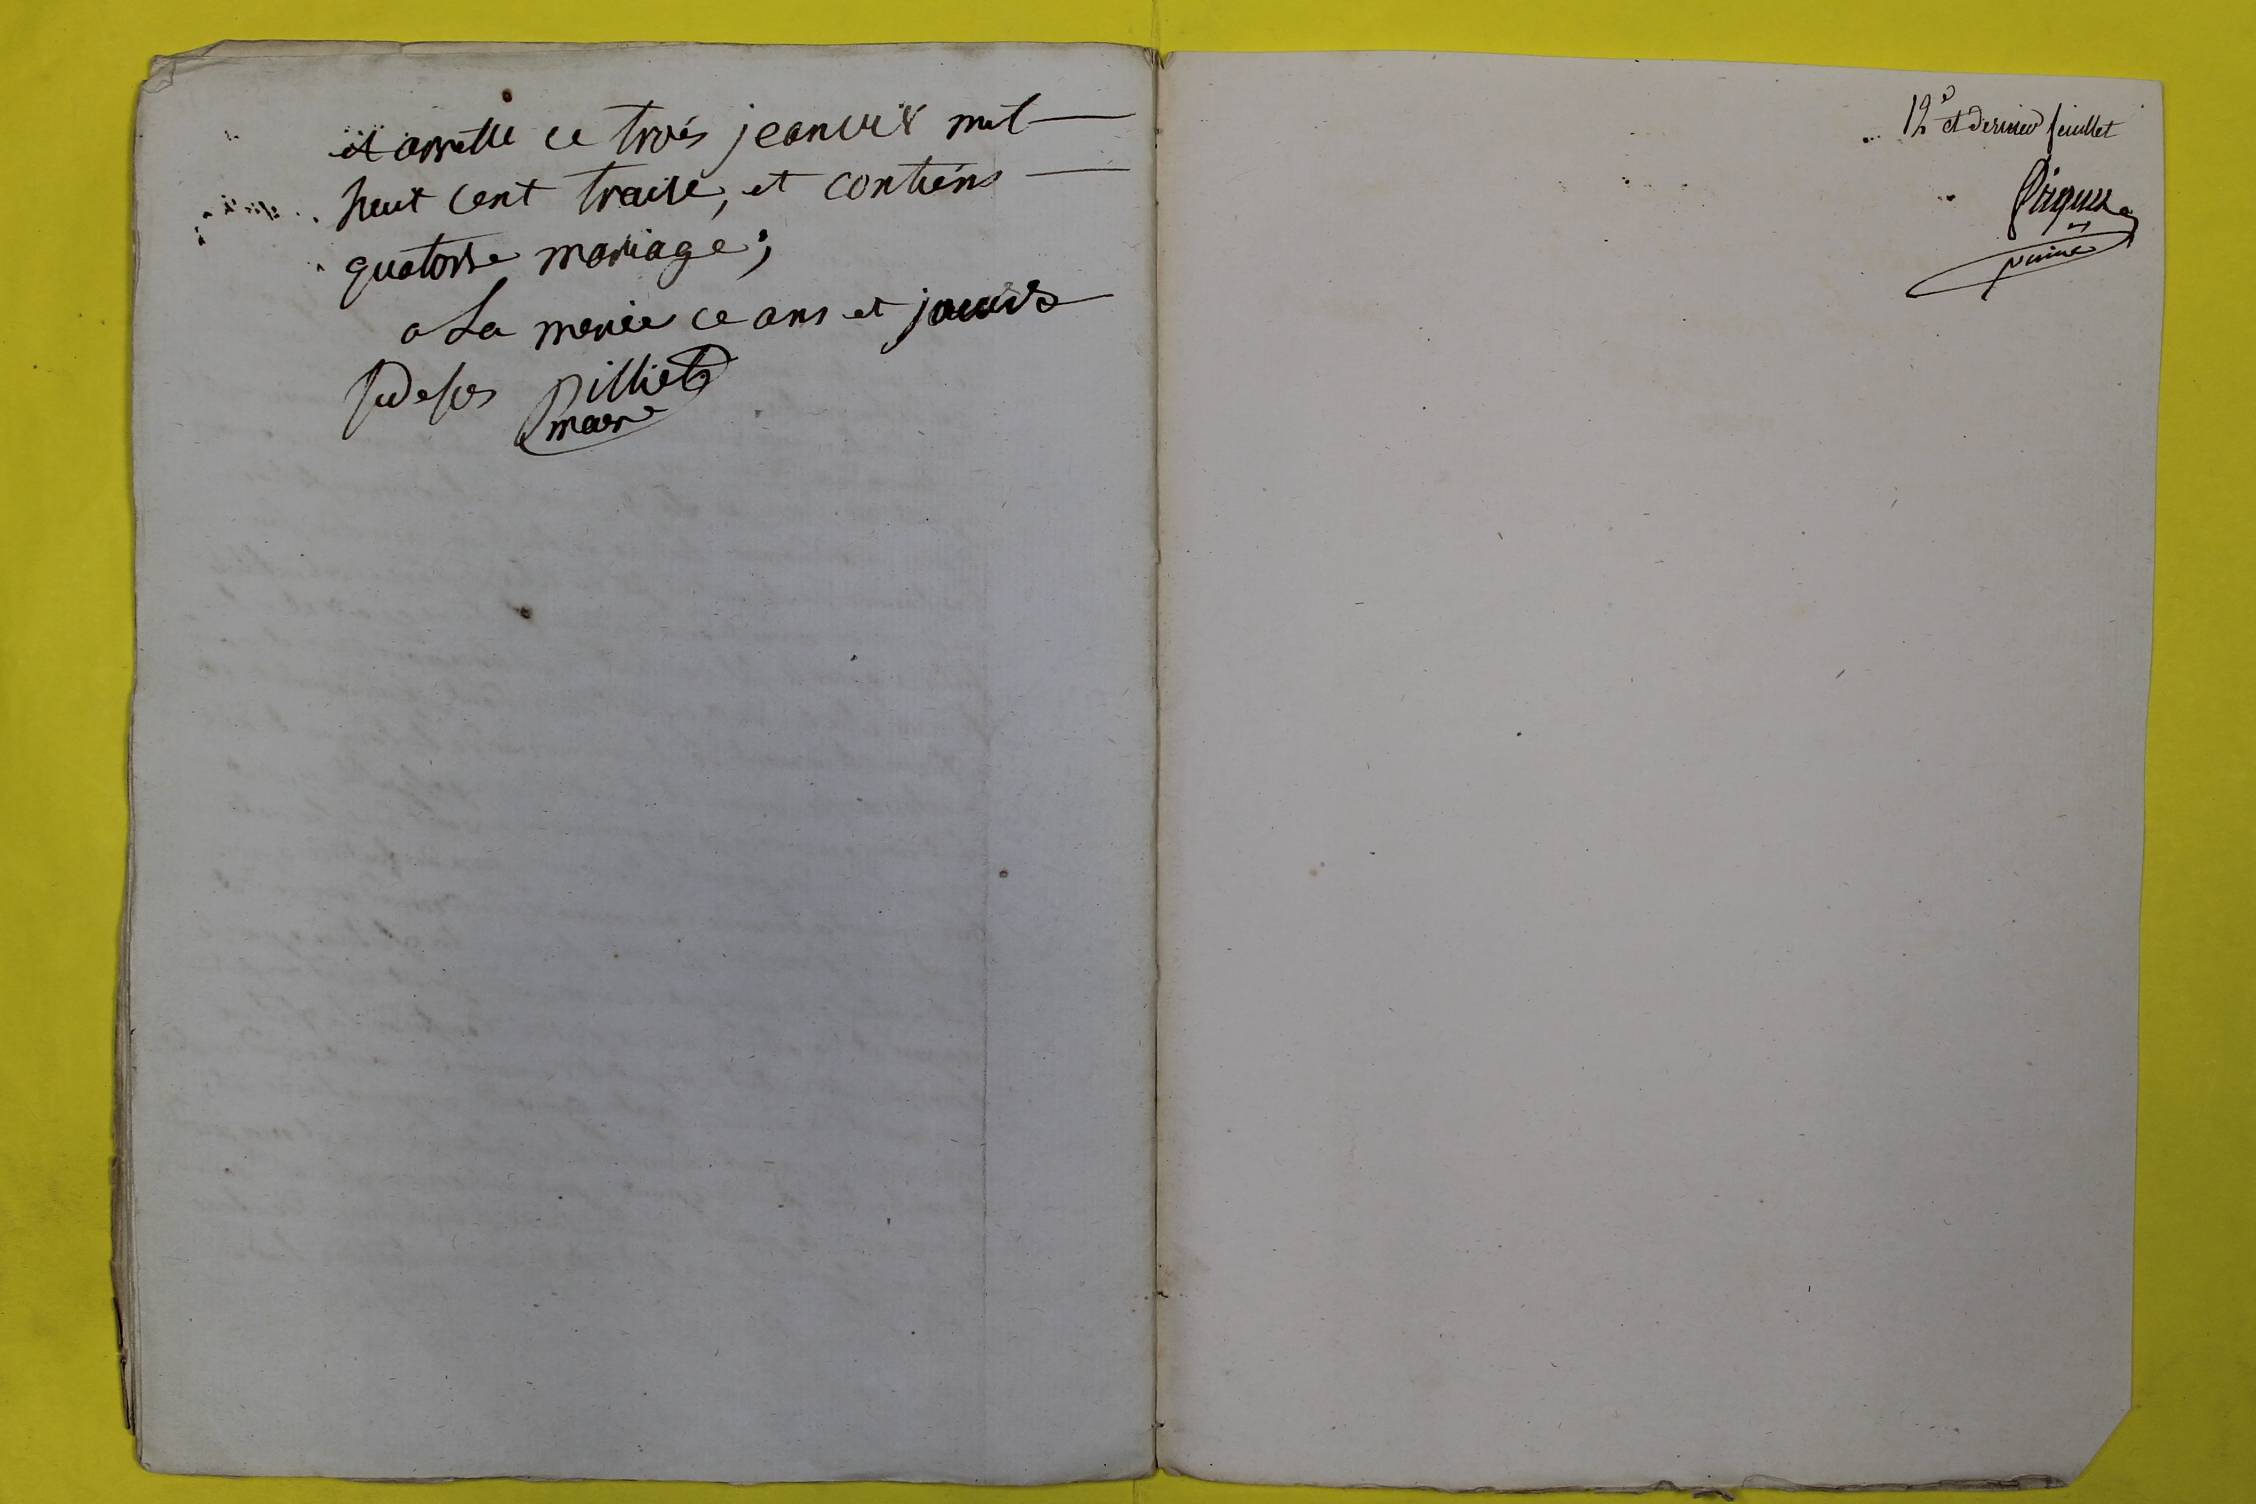 et arrette ce trois jeanvier mil
huit cent traise, et contiens
quatorse mariage;
a la merie ce ans et jours
sudeses Pilliet
maire
12e et dernier feuillet